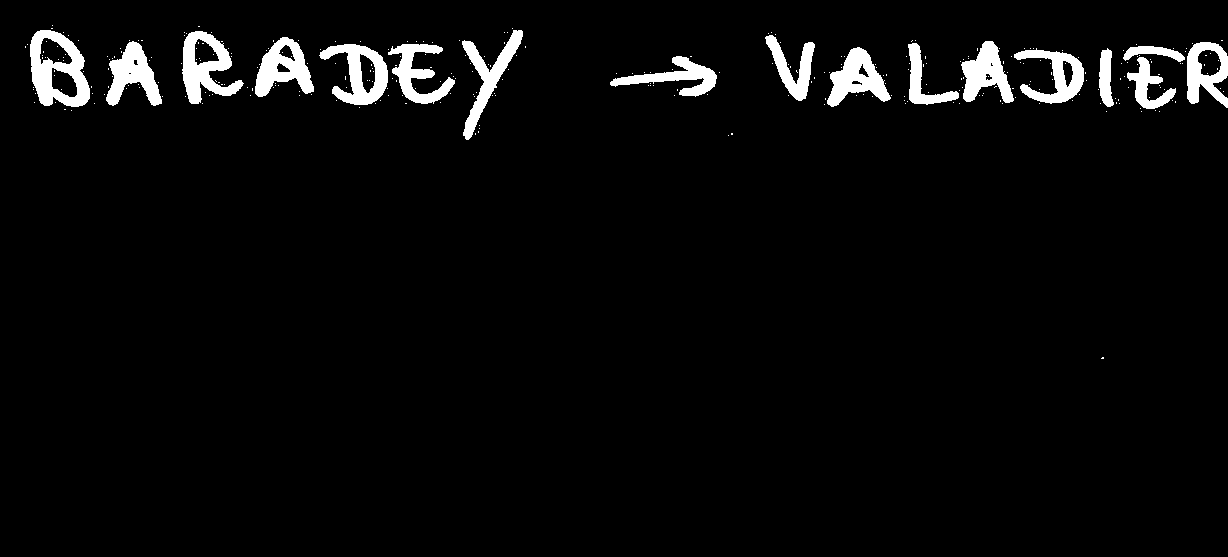 BARADEY → VALADIER